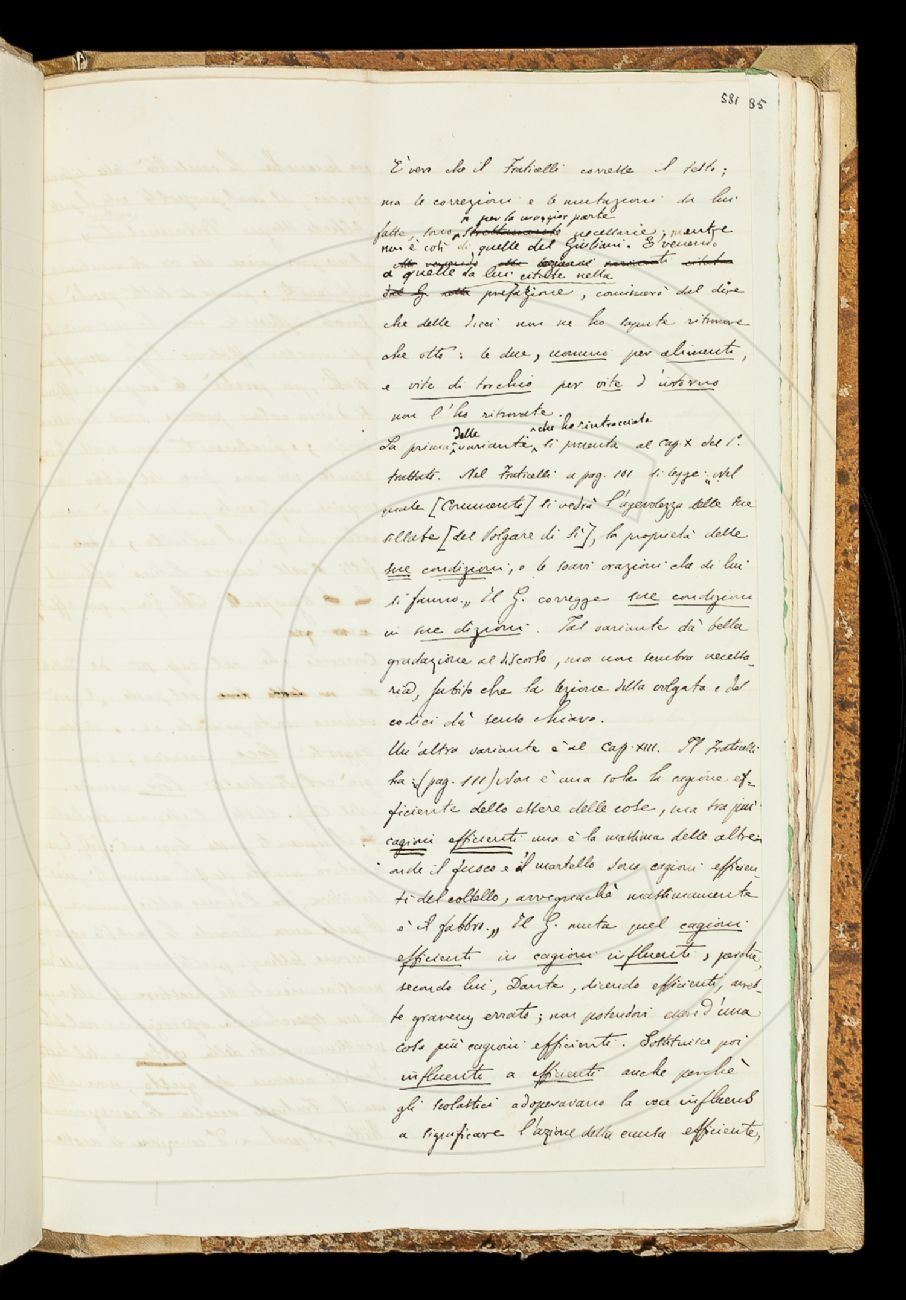 581 85
È vero che il Fraticelli corresse il testo;
ma le correzioni e le mutazioni da lui
per la maggior parte
fatte, sono necessarie; mentre
non è così di quelle del Giuliani. E venendo
a quelle da lui citate nella
prefazione, comincerò dal dire
che delle dieci non ne ho sapute ritrovare
che otto: le due, nomino per alimenti,
e vite di torchio per vite d'intorno
non l'ho ritrovate.
delle che ho rintracciate
La prima varianti, si presenta al cap. X del 1.º
trattato. Nel Fraticelli a pag. 101 si legge: „Nel
quale [Commento] si vedrà l'agevolezza delle sue
sillabe [del Volgare di Sì], la proprietà delle
sue condizioni, e le soavi orazioni che di lui
si fanno.„ Il G. corregge sue condizioni
in sue dizioni. Tal variante dà bella
gradazione al discorso, ma non sembra necessa-
ria, subito che la lezione della volgata e dei
codici dà senso chiaro.
Un'altra variante è al Cap. XIII. Il Fraticelli
ha: (pag. 111) „Non è una sola la cagione ef-
ficiente dello essere delle cose, ma tra più
cagioni efficienti una è la massima delle altre:
onde il fuoco e il martello sono cagioni efficien-
ti del coltello, avvegnachè massimamente
è il fabbro.„ Il G. muta quel cagioni
efficienti in cagioni influenti, perchè,
secondo lui, Dante, dicendo efficienti, avreb-
be gravem. errato; non potendovi esser d'una
cosa più cagioni efficienti. Sostituisce poi
influenti a efficienti anche perchè
gli scolastici adoperavano la voce influens
a significare l'azione della causa efficiente,